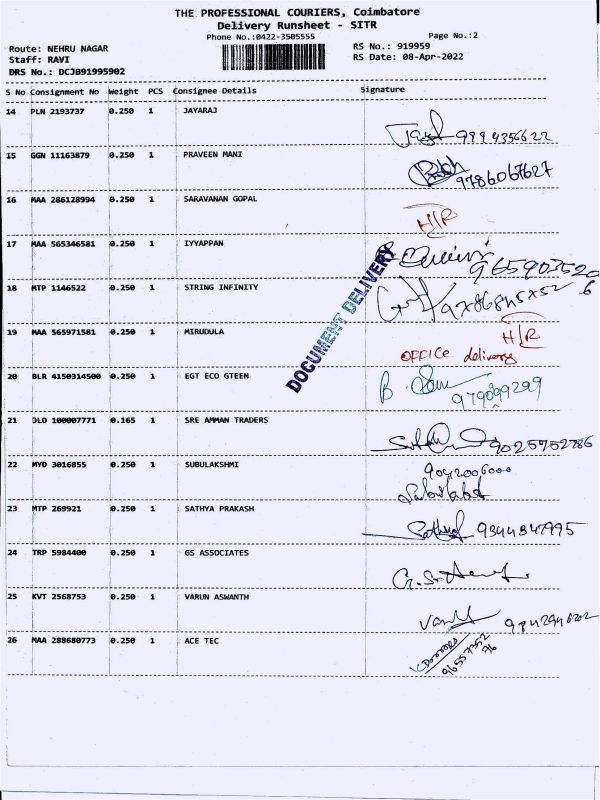 THE PROFESSIONAL COURIERS, Coimbatore
Delivery Runsheet - SITR
Phone No.:0422-3505555 Page No.:2
Route: NEHRU NAGAR RS No.: 919959
Staff: RAVI RS Date: 08-Apr-2022
DRS No.: DCJB91995902
S No Consignment No Weight PCS Consignee Details Signature
14 PLN 2193737 0.250 1 JAYARAJ
9994356622
15 GGN 11163879 0.250 1 PRAVEEN MANI
9786067627
16 MAA 286128994 0.250 1 SARAVANAN GOPAL
H/R
17 MAA 565346581 0.250 1 IYYAPPAN
18 MTP 1146522 0.250 1 STRING INFINITY
DOCUMENT DELIVERY
19 MAA 565971581 0.250 1 MIRUDULA
H/R
OFFICE delivery
20 BLR 4150314500 0.250 1 EGT ECO GTEEN
21 JLO 100007771 0.165 1 SRE AMMAN TRADERS
9025752786
22 MYD 3016855 0.250 1 SUBULAKSHMI
9042006000
23 MTP 269921 0.250 1 SATHYA PRAKASH
9344847995
24 TRP 5984400 0.250 1 GS ASSOCIATES
25 KVT 2568753 0.250 1 VARUN ASWANTH
26 MAA 288680773 0.250 1 ACE TEC